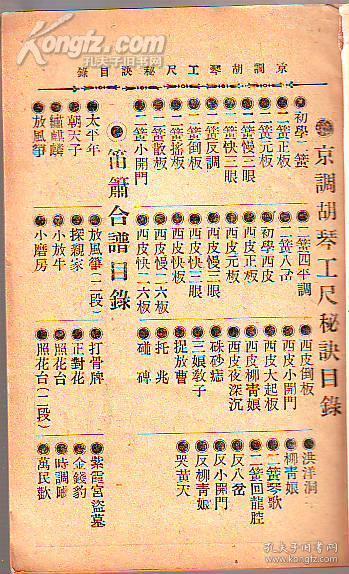 Kongfz.com
孔夫子旧书网
京調胡琴工尺秘訣目錄
京調胡琴工尺秘訣目錄
初學二簧
二簧正板
二簧元板
二簧慢三眼
二簧快三眼
二簧反調
二簧倒板
二簧搖板
二簧散板
二簧小開門
二簧四平調
二簧八岔
初學西皮
西皮正板
西皮元板
西皮慢三眼
西皮快三眼
西皮快板
西皮慢二六板
西皮快二六板
西皮倒板
西皮小開門
西皮大起板
西皮柳青娘
西皮夜深沉
硃砂痣
三娘教子
捉放曹
托兆
碰碑
洪洋洞
柳青娘
二簧琴歌
二簧回龍腔
反八岔
反小開門
反柳青娘
哭黃天
笛簫合譜目錄
太平年
朝天子
繡麒麟
放風箏
放風箏(二段)
探親家
小放牛
小磨房
打骨牌
正對花
照花台
照花台(二段)
紫霞宮盜墓
金錢豹
時調
萬民歡
孔夫子旧书网
kongfz.com